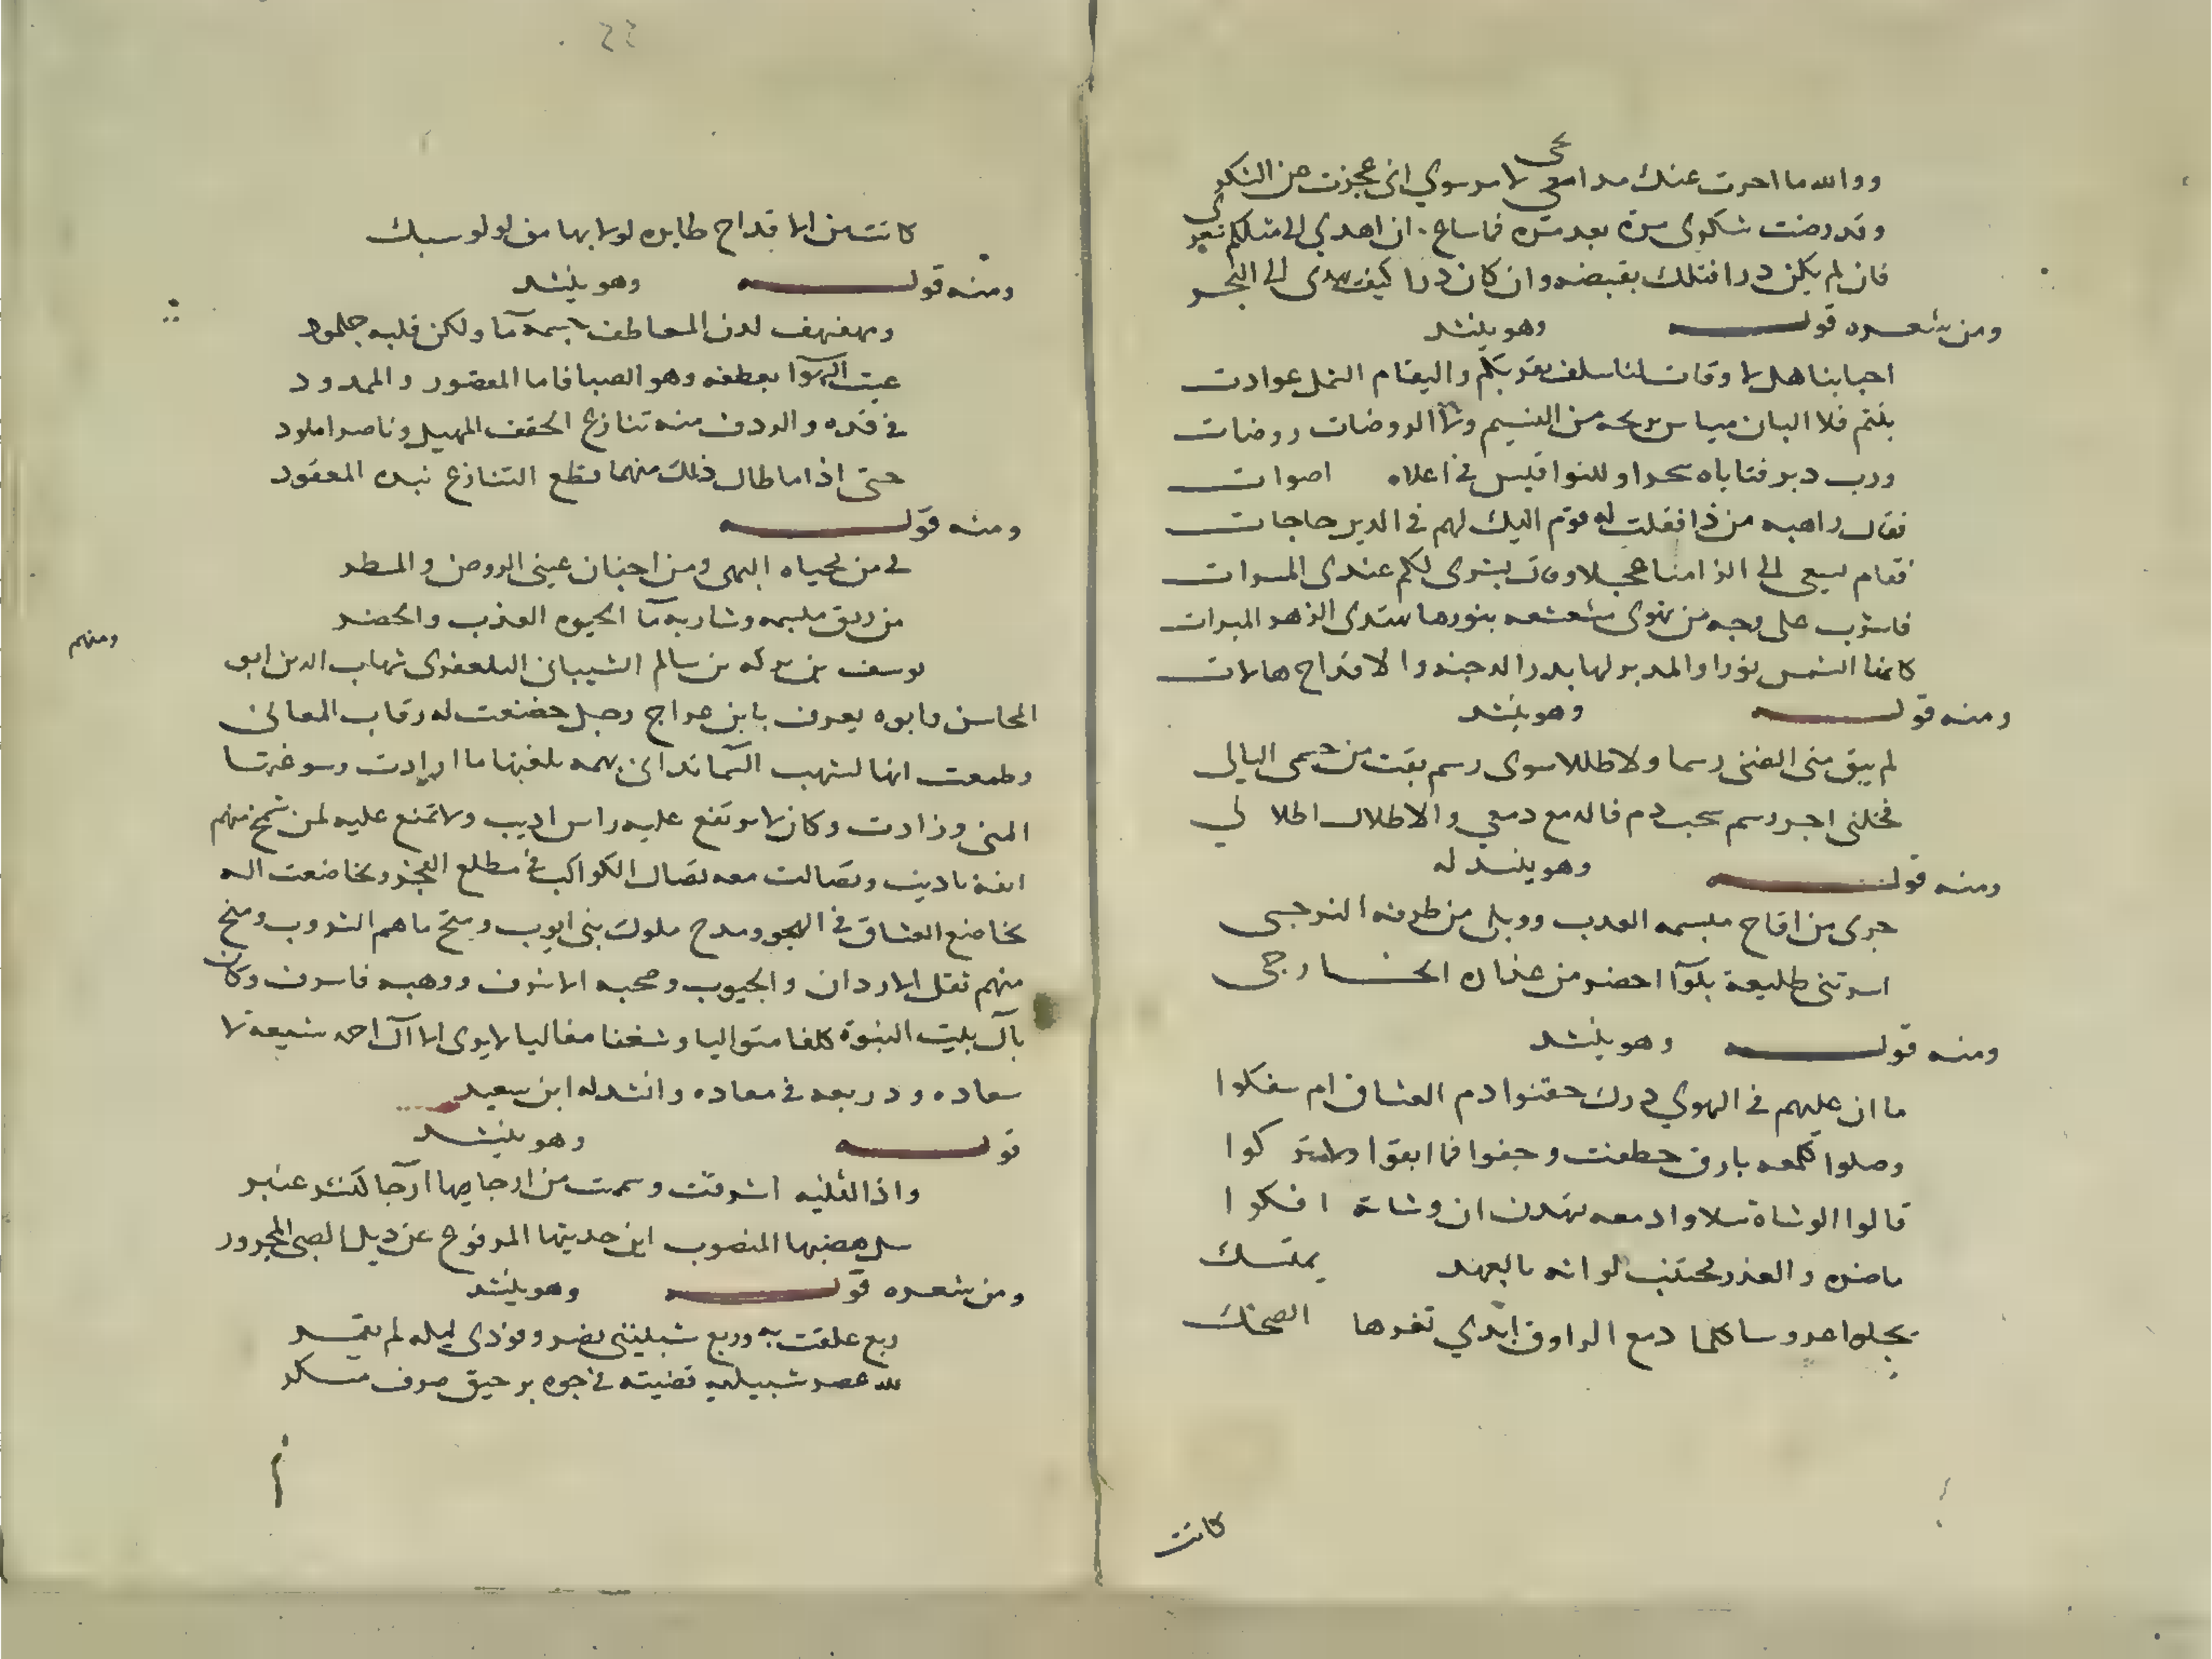 ووالله ما احرت عنك مدامعي لامر سوي اني عجزت عن
وقد رضت شكوى مرة بعد مرة فما ساع ان اهدي الى مثلكم
فان لم يكن درا فتلك بقبضه وان كان درا كيف يهدى الى البحر
ومن شعره قوله وهو ينشد
احبابنا هل لاوقات لنا سلف بقربكم واليقام الشمل عوادت
بنتم فلا البان مياس بريحه من النسيم ولا الروضات روضات
ورب دير فتاباه سحرا وللنواقيس في اعلاه اصوات
فقال راهبه من ذا فقلت له قوم اليك لهم في الدير حاجات
فقام يسعى الى عجلا وقال بشرى لكم عندى المسرات
فاشرب على وجه من تهوى مشعشعه بنورها الزهر المبرات
كانها الشمس نورا والمدير لها بدر الدجنه والاقداح هالات
ومنه قوله وهو ينشد
لم يبق منى الضنى رسما ولا طللا سوى رسم بقت من جسمى البالى
فخلنى اجر رسم سحب دم قاله مع دمعي والاطلال اطلا لي
ومنه قوله وهو ينشد له
جرى من اقاح مبسمه العدب ووبلى من طرفه النرجسى
اسرتنى طليعة بلوآ احضر من عذاره الخارجى
ومنه قوله وهو ينشد
ما ان عليهم في الهوي درك حقنوا دم العشاق ام سفكوا
وصلوا كلمعه بارق خطفت وجفوا فما ابقوا ولا تركوا
قالوا الوشاة سلا وادمعه تهدن ان وشاته افكوا
ماضره والعذر مجتنب لو انه بالعهد يمتسك
يجلوا عروسا كلما دمع الراووق ابدي ثغرها الضحك
كانت
كانت من الاقداح طايره لولا بها من لولو سبك
ومنه قوله وهو ينشد
ومهفهف لدن المعاطف جسمه مآ ولكن قلبه جلمود
عبث الهوآ بعطفه وهو الصبا فاما المقصور والممدود
في قده والردف منه تنازع الحقف المهيل وناضر املود
حتى اذا ما طال ذلك منهما قطع التنازع بنده المعقود
ومنه قوله
لي من محياه البهى ومن اجفان عينى الروض والمطر
من ريق مبسمه وشاربه مآ الحيوه العذب والخضر
ومنهم
يوسف بن بركه بن سالم الشيبانى التلعفرى شهاب الدين ابو
المحاسن وابوه يعرف بابن عراج رجل خضعت له رقاب المعانى
وطمعت انها لشهب السما تدانى بهمه بلغتها ما ارادت وسوغتها
المنى وزادت وكان لا يرتفع عليه راس اديب ولا تمنع عليه لمن شمخ منهم
انفة تاديب وتضالت معه تضال الكواكب في مطلع الفجر وتخاضعت اله
تخاضع العشاق في الهجر ومدح ملوك بنى ايوب ومتح ماهم الشروب ومنح
منهم ثقل الاردان والجيوب وصحبه الاشرف ووهبه فاسرف وكان
بآل بيت النبوة كلفا متواليا وشغفا مغاليا لا يرى الا آل احمد شيعة لا
سعاده ودر بعد في معاده وانشد له ابن سعيد
قوله وهو ينشد
واذا الثنيه اشرقت وشممت من ارجايها ارجا كنشر عنبر
سل هضبها المنصوب اين حديثها المرفوع عن ذيل الصبى المجرور
ومن شعره قوله وهو ينشد
ربع علقت به وربع شبيبتى نضر وفودى ليله لم يقمر
لله عصر شبيبه قضيته في جوه برحيق صرف مسكر